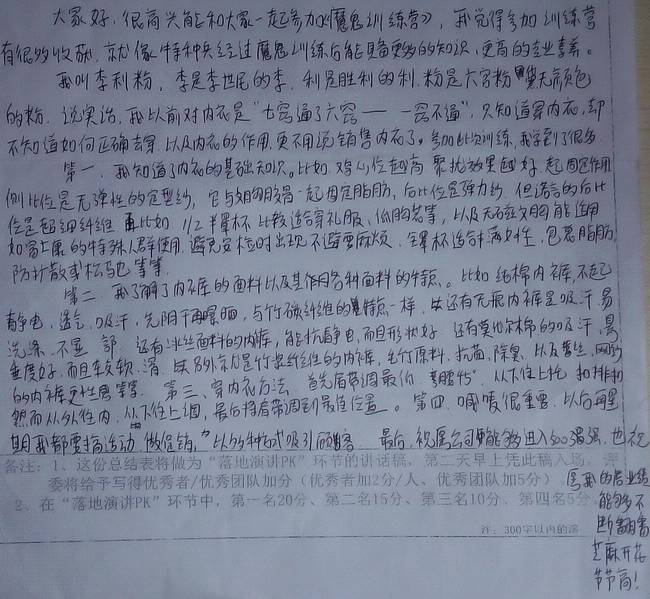 大家好,很高兴能和大家一起参加《魔鬼训练营》,我觉得参加训练营
有很多收获,就像特种兵经过魔鬼训练后能具备更多的知识,更高的专业素养。
我叫李利粉,李是李世民的李,利是胜利的利,粉是六宫粉黛无颜色
的粉。说实话,我以前对内衣是"七窍通了六窍——一窍不通",只知道穿内衣,却
不知道如何正确去穿,以及内衣的作用,更不用说销售内衣了。参加此次训练,我学到了很多
第一,我知道了内衣的基础知识。比如鸡心位越高聚拢效果越好,起固定作用
侧比位是无弹性的定型纱,它与钢胶骨一起固定脂肪,后比位是弹力纱,但诺言的后比
位是超细纤维,再比如 1/2罩杯比较适合穿礼服、低胸装等,以及无磁文胸能适用
的特殊人群使用,避免安检时出现不避要麻烦,全罩杯适合丰满女性,包容脂肪,
防扩散或松弛等等。
第二,我了解了内裤的面料以及其作用各种面料的特点。比如纯棉内裤,不起
静电,透气,吸汗,先阴干再曝晒,与竹碳纤维的特点一样,还有无痕内裤是吸汗易
洗涤,不显 还有冰丝面料的内裤,能抗静电,而且形状好 还有莫代尔棉的吸汗,悬
垂度好,而且柔软、滑 另外就是竹浆纤维的内裤,竹原料,抗菌、除臭,以及蕾丝,网纱
的内裤更性感等等。第三、穿内衣方法,首先肩带调最低, 从下往上托,扣排扣
然而从外往内,从下往上调,最后将肩带调到最佳位置。第四,喊唛很重要,以后每星
期我都要搞活动,做促销,以 的方式吸引顾客。最后,祝愿公司能够进入500强,也祝
愿我的店业绩
能够不
断翻番
芝麻开花
节节高!
备注:1、这份总结表将做为"落地演讲PK"环节的讲话稿,第二天早上凭此稿入场,评
委将给予写得优秀者/优秀团队加分(优秀者加2分/人、优秀团队加5分)
2、在"落地演讲PK"环节中,第一名20分、第二名15分、第三名10分、第四名5分
注:300字以内的演